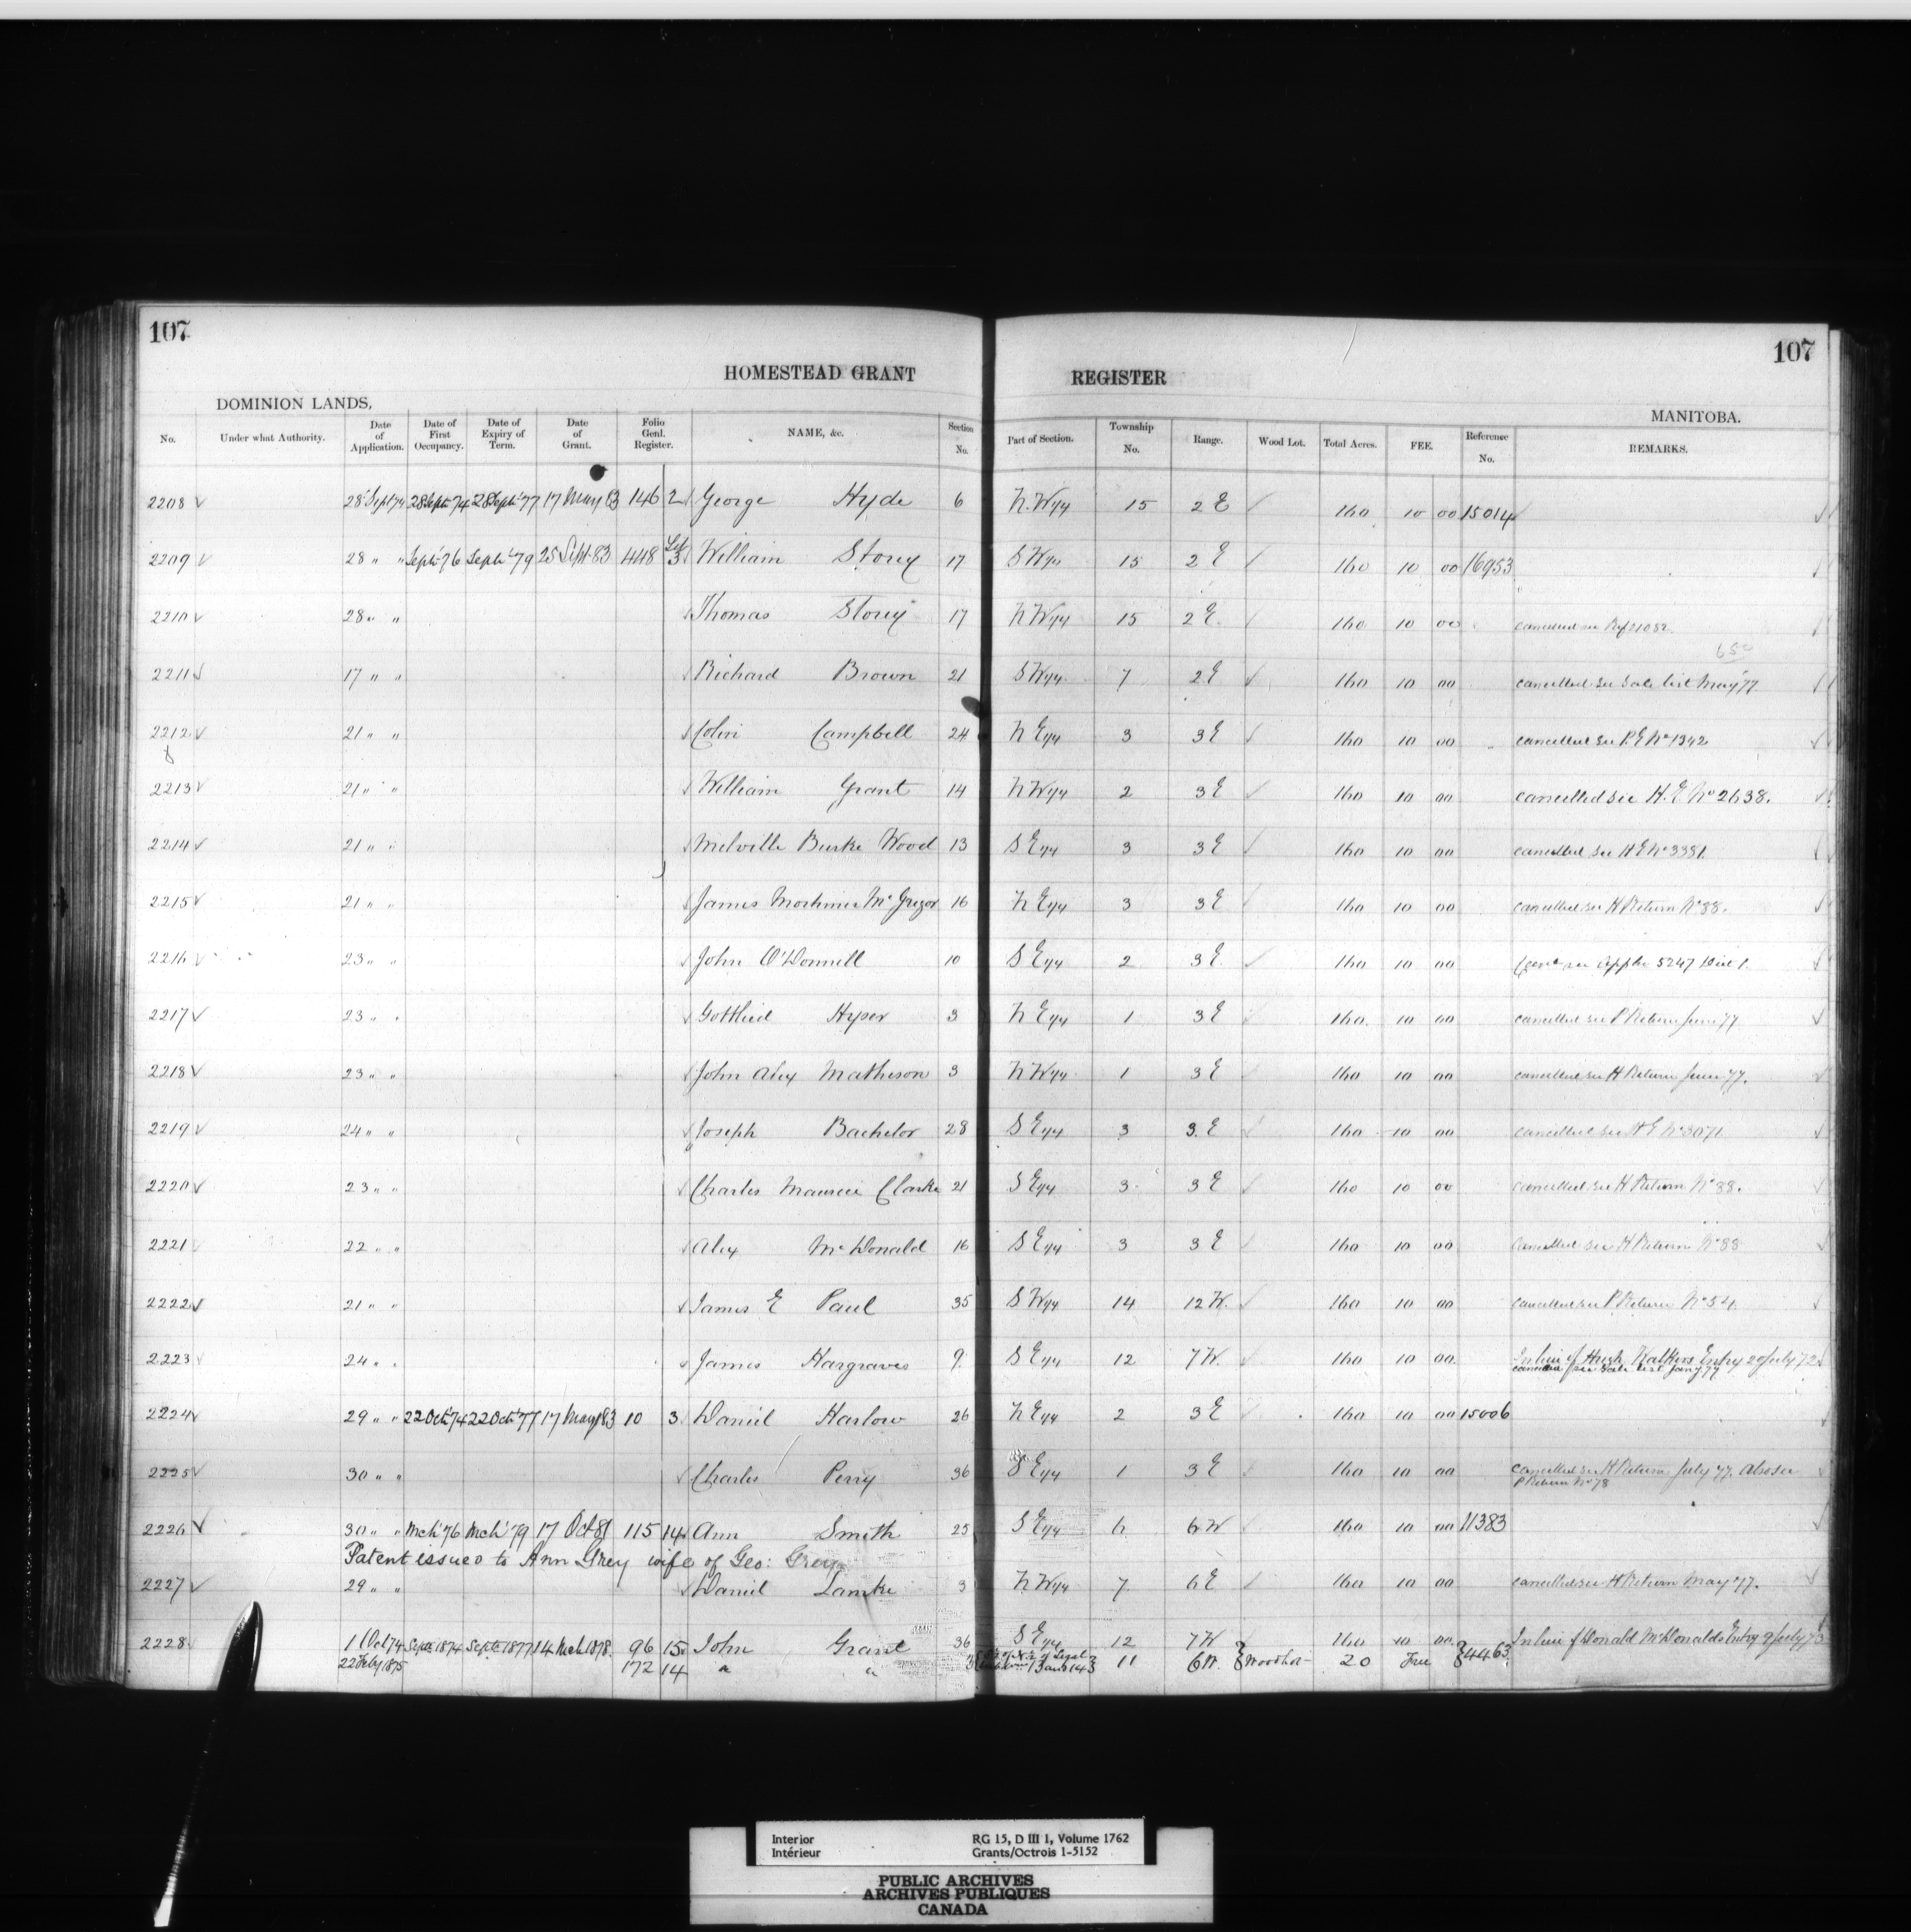 107
107
HOMESTEAD GRANT REGISTER
DOMINION LANDS,
MANITOBA.
No. Under what Authority. Date of Application. Date of First Occupancy. Date of Expiry of Term. Date of Grant. Folio Genl. Register. NAME, &c. Section No. Part of Section. Township No. Range. Wood Lot. Total Acres. FEE. Reference No. REMARKS.
2208 √ 28 Sept 74 28 Sept 74 28 Sept 77 17 May 83 146 2 √ George Hyde 6 N.W 1/4 15 2 E √ 160 10 00 15014 √
2209 √ 28 " " Sept 76 Sept 79 25 Sept 83 448 3 √ William Storey 17 S W 1/4 15 2 E √ 160 10 00 16953 √
2210 √ 28 " " √ Thomas Storey 17 N W 1/4 15 2 E √ 160 10 00 cancelled see Ref 21082 √
650
2211 √ 17 " " √ Richard Brown 21 S W 1/4 7 2 E √ 160 10 00 cancelled see Sale list May 77 √
2212 √ 21 " " √ Colin Campbell 24 N E 1/4 3 3 E √ 160 10 00 cancelled see P. E No 1342 √
2213 √ 21 " " √ William Grant 14 N W 1/4 2 3 E √ 160 10 00 cancelled see H. E No 2638. √
2214 √ 21 " " √ Melville Burke Wood 13 S E 1/4 3 3 E √ 160 10 00 cancelled see H E No 3381 √
2215 √ 21 " " √ James Mortimer McGregor 16 N E 1/4 3 3 E √ 160 10 00 cancelled see H Return No 88. √
2216 √ 23 " " √ John O'Donnell 10 S E 1/4 2 3 E √ 160 10 00 see Appln 5247 √
2217 √ 23 " " √ Gottlied Hyser 3 N E 1/4 1 3 E √ 160 10 00 cancelled see P Return June 77 √
2218 √ 23 " " √ John Alex Matheson 3 N W 1/4 1 3 E √ 160 10 00 cancelled see H Return June 77. √
2219 √ 24 " " √ Joseph Bachelor 28 S E 1/4 3 3 E √ 160 10 00 cancelled see H E No 3071 √
2220 √ 23 " " √ Charles Maurice Clarke 21 S E 1/4 3 3 E √ 160 10 00 cancelled see H Return No 88. √
2221 √ 22 " " √ Alex McDonald 16 S E 1/4 3 3 E √ 160 10 00 cancelled see H Return No 88 √
2222 √ 21 " " √ James E Paul 35 S W 1/4 14 12 W. √ 160 10 00 cancelled see P Return No 54. √
2223 √ 24 " " √ James Hargraves 9 S E 1/4 12 7 W. √ 160 10 00 In lieu of Hugh Walkers Entry 20 July 72 √
cancelled see Sale list Jany 77
2224 √ 29 " " 22 Oct 74 22 Oct 77 17 May 83 10 3 Daniel Harlow 26 N E 1/4 2 3 E √ 160 10 00 15006 √
2225 √ 30 " " √ Charles Perry 36 S E 1/4 1 3 E √ 160 10 00 cancelled see H Return July 77. also see √
P Return No 78
2226 √ 30 " " Mch 76 Mch 79 17 Oct 81 115 14 Ann Smith 25 S E 1/4 6 6 W √ 160 10 00 11383 √
Patent issued to Ann Grey wife of Geo: Grey
2227 √ 29 " " √ Daniel Lamke 3 N W 1/4 7 6 E √ 160 10 00 cancelled see H Return May 77. √
2228 1 Oct 74 Sept 1874 Sept 1877 14 Mch 1878 96 15 John Grant 36 S E 1/4 12 7 W 160 10 00 In lieu of Donald McDonalds Entry 9 July 73
22 Feby 1875 172 14 " " 3 11 6 W. Woodlot 20 Free 4463
Interior RG 15, D III 1, Volume 1762
Intérieur Grants/Octrois 1-5152
PUBLIC ARCHIVES
ARCHIVES PUBLIQUES
CANADA